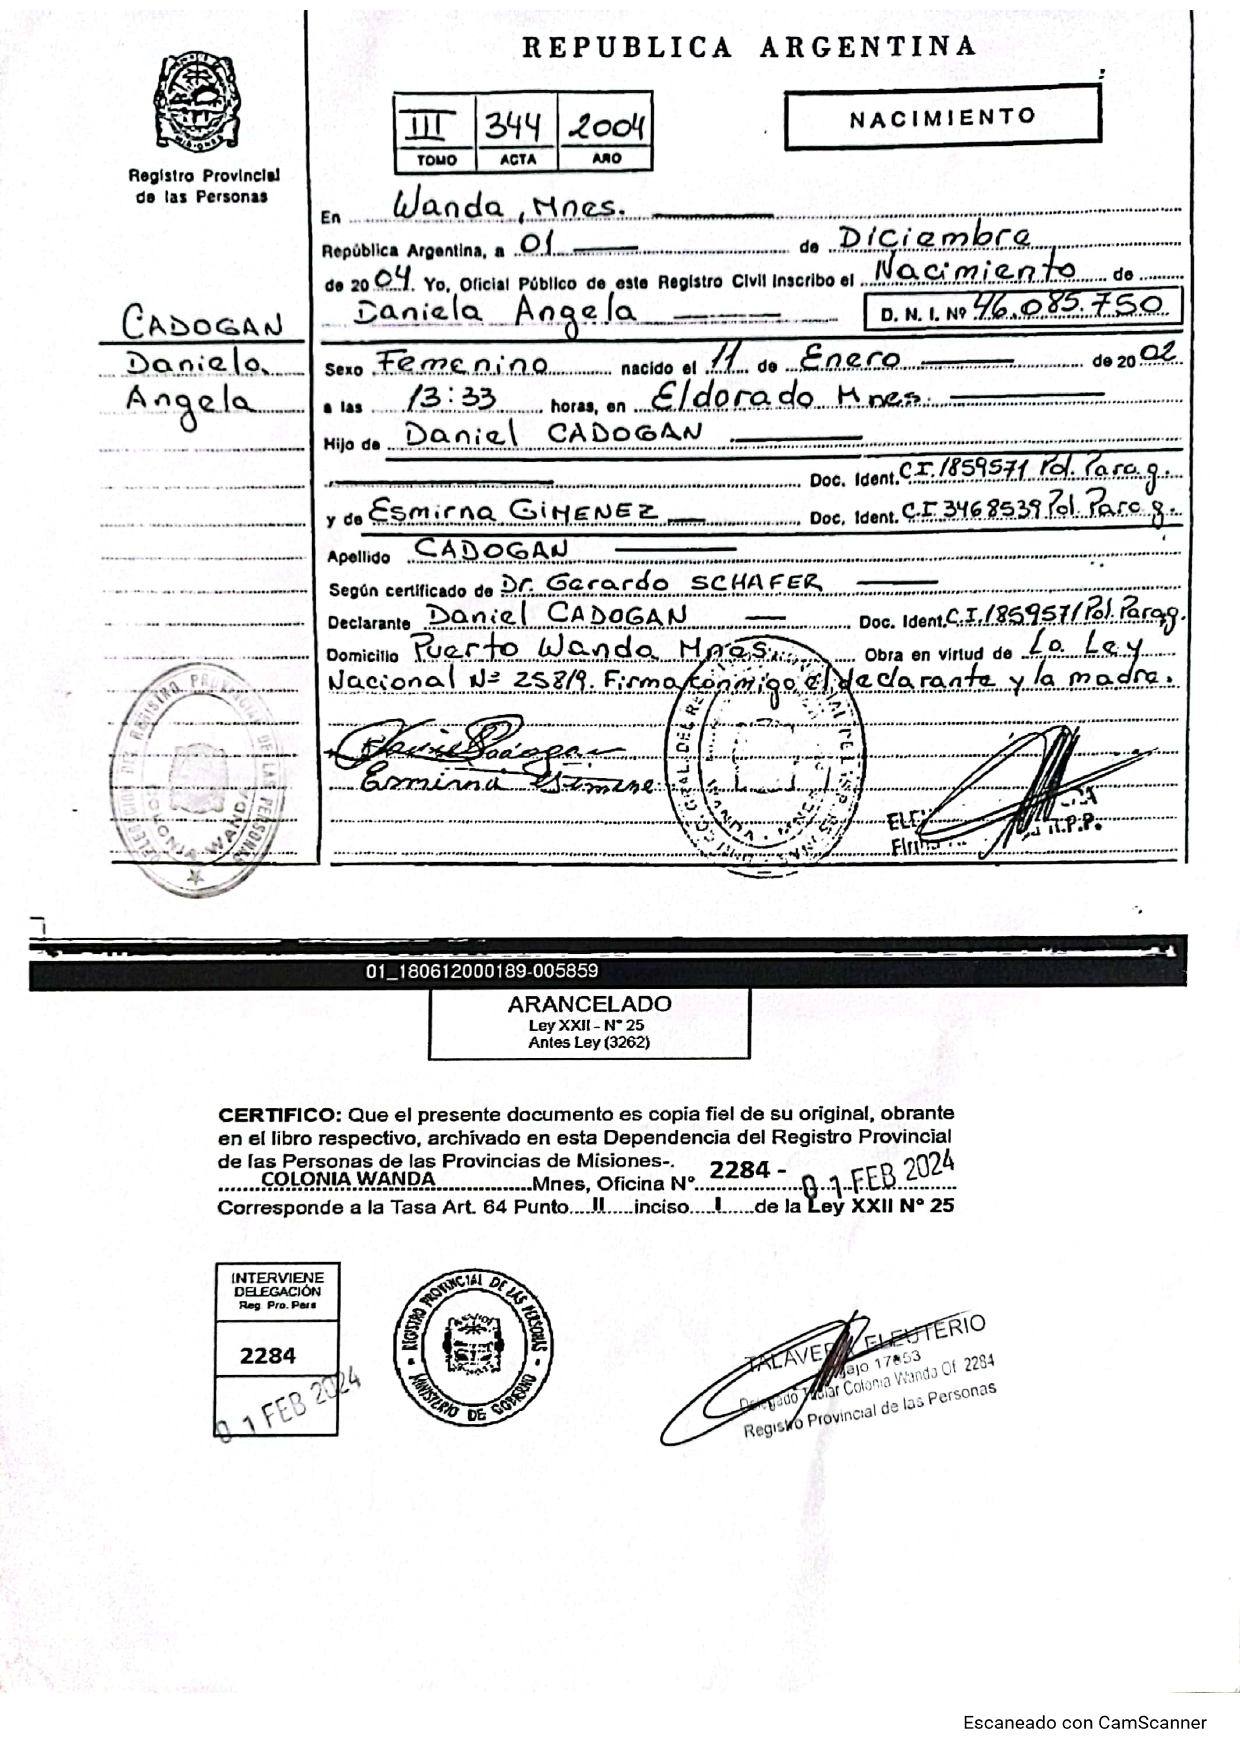 REPUBLICA ARGENTINA
Registro Provincial
de las Personas
III 344 2004
TOMO ACTA AÑO
NACIMIENTO
CADOGAN
Daniela
Angela
En Wanda, Mnes.
República Argentina, a 01 de Diciembre
de 2004. Yo, Oficial Público de este Registro Civil Inscribo el Nacimiento de
Daniela Angela D. N. I. Nº 46.085.750
Sexo Femenino nacido el 11 de Enero de 2002
a las 13:33 horas, en Eldorado Mnes.
Hijo de Daniel CADOGAN
Doc. Ident. C.I. 1859571 Pol. Parag.
y de Esmirna GIMENEZ Doc. Ident. C.I 3468539 Pol. Parag.
Apellido CADOGAN
Según certificado de Dr. Gerardo SCHAFER
Declarante Daniel CADOGAN Doc. Ident. C.I. 1859571 Pol. Parag.
Domicilio Puerto Wanda Mnes. Obra en virtud de La Ley
Nacional Nº 25819. Firma conmigo el declarante y la madre.
Esmirna Gimene
COLONIA WANDA
01_180612000189-005859
ARANCELADO
Ley XXII - N° 25
Antes Ley (3262)
CERTIFICO: Que el presente documento es copia fiel de su original, obrante
en el libro respectivo, archivado en esta Dependencia del Registro Provincial
de las Personas de las Provincias de Misiones-.
COLONIA WANDA Mnes, Oficina N° 2284 - 01 FEB 2024
Corresponde a la Tasa Art. 64 Punto....II.....inciso....I......de la Ley XXII N° 25
INTERVIENE
DELEGACIÓN
Reg. Pro. Pers
2284
01 FEB 2024
REGISTRO PROVINCIAL DE LAS PERSONAS
MINISTERIO DE GOBIERNO
TALAVERA ELEUTERIO
Delegado Titular Colonia Wanda Of. 2284
Registro Provincial de las Personas
Escaneado con CamScanner